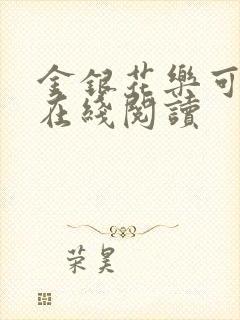 金銀花樂可
在綫閱讀
荣昊